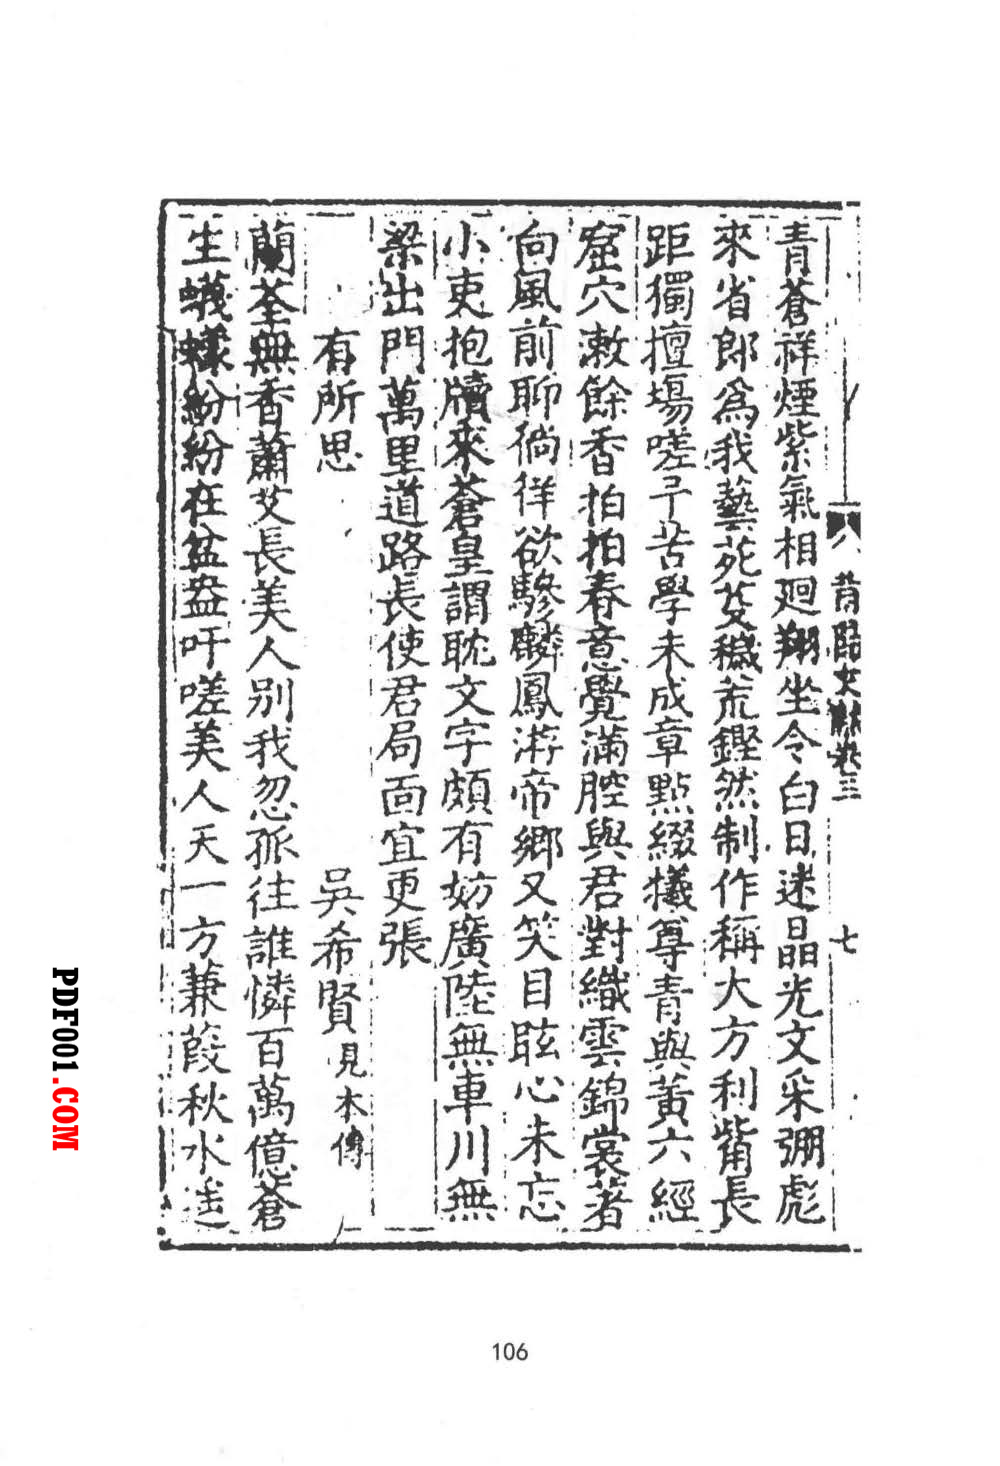 青蒼祥煙紫氣相迴翔坐令白日迷晶光文采弸彪
來省郎爲我藝苑芟穢荒鏗然制作稱大方利觜長
距獨擅場嗟予苦學未成章點綴犧尊青與黃六經
窟穴漱餘香拍拍春意覺滿腔與君對織雲錦裳著
向風前聊徜徉欲驂麟鳳游帝鄉又笑目眩心未忘
小吏抱牘來蒼皇謂耽文字頗有妨廣陸無車川無
梁出門萬里道路長使君局面宜更張
有所思 吳希賢見本傳
蘭荃無香蕭艾長美人別我忽孤往誰憐百萬億蒼
生蠛蠓紛紛在盆盎吁嗟美人天一方蒹葭秋水遙
莆陽文獻卷三 七
PDF001.COM
106